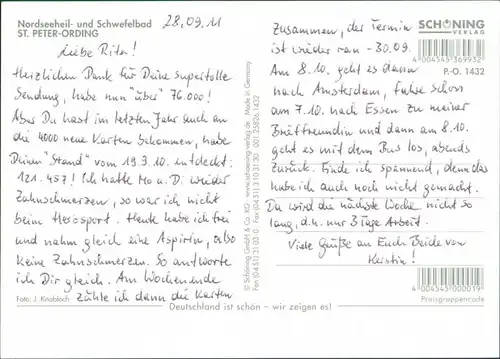 Nordseeheil- und Schwefelbad
ST. PETER-ORDING
28.09.11
Liebe Rita!
Herzlichen Dank für Deine supertolle
Sendung, habe nun "über" 76.000!
Aber Du hast im letzten Jahr auch an
die 4000 neue Karten bekommen, habe
Deinen "Stand" vom 19.3.10 entdeckt:
121.457! Ich hatte Mo u. Di wieder
Zahnschmerzen, so war ich nicht
beim Herzsport. Heute habe ich frei
und nahm gleich eine Aspirin, also
keine Zahnschmerzen. So antworte
ich Dir gleich. Am Wochenende
zähle ich dann die Karten
Foto: J. Knobloch
© Schöning GmbH & Co. KG · www.schoening-verlag.de · Made in Germany
Fon (04 51) 3 10 31 0 · Fax (04 51) 3 10 31 30 · 001 25826 1432
zusammen, der Termin
ist wieder ran - 30.09.
Am 8.10. geht es dann
nach Amsterdam, fahre schon
am 7.10. nach Essen zu meiner
Brieffreundin und dann am 8.10.
geht es mit dem Bus los, abends
zurück. Finde ich spannend, denn das
habe ich auch noch nicht gemacht.
Du wird die nächste Woche nicht so
lang, d.h. nur 3 Tage Arbeit.
Viele Grüße an Euch Beide von
Kerstin!
SCHÖNING
VERLAG
4 004545 369932
P.-O. 1432
4 004545 000019
Preisgruppencode
Deutschland ist schön – wir zeigen es!